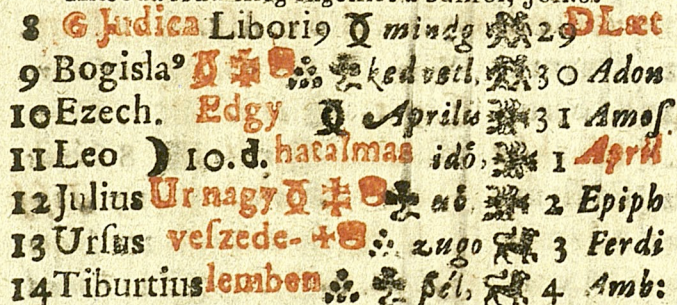 8 G Judica Liborį9 mindg 29 D Læt
9 Bogisla⁹ kedvetl, 30 Adon
10 Ezech. Edgy Aprilis 31 Amos.
11 Leo 10.d. hatalmas idő, 1 April
12 Julius Ur nagy 2 Epiph
13 Urſus veſzede- zugo 3 Ferdi
14 Tiburtius lemben ſzél, 4 Amb: